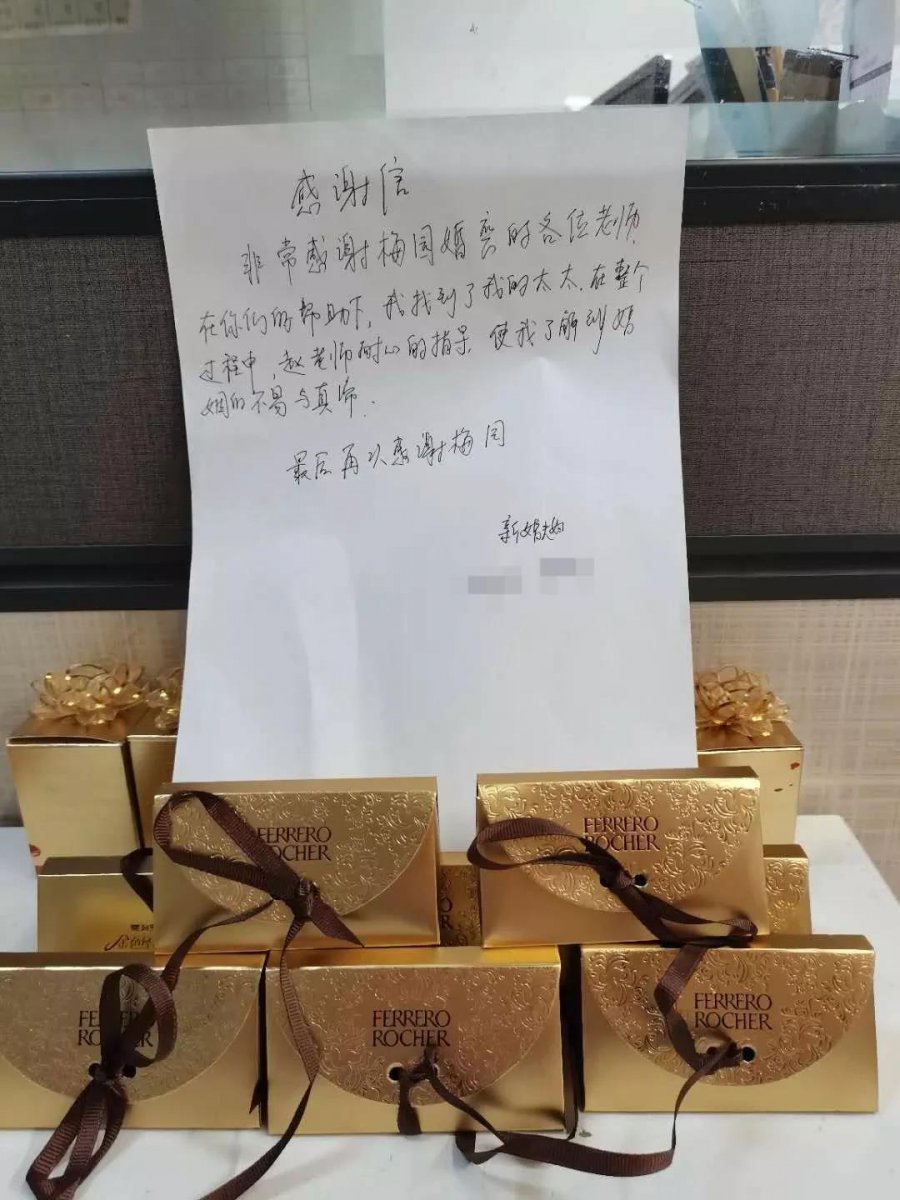 感谢信
非常感谢梅园婚介的各位老师.
在你们的帮助下,我找到了我的太太.在整个
过程中,赵老师耐心的指导.使我了解到婚
姻的不易与真谛.
最后再次感谢梅园
新婚夫妇
FERRERO
ROCHER
FERRERO
ROCHER
FERRERO
ROCHER
FERRERO
ROCHER
FERRERO
ROCHER